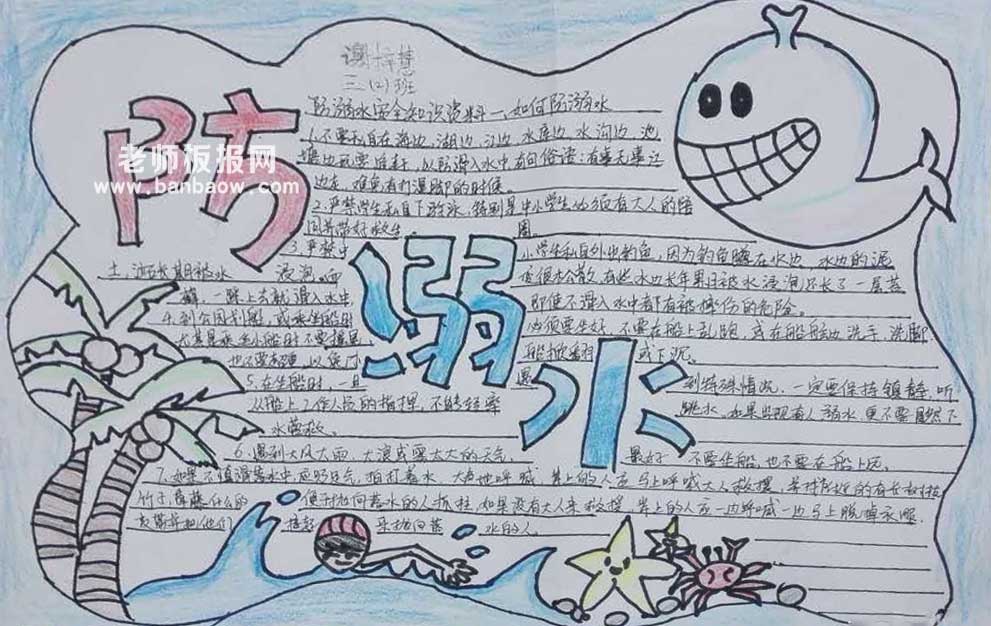 三(2)班
防溺水安全知识资料—如何防溺水
1.不要私自在海边、湖边、江边、水库边、水沟边、池
塘边玩耍,以防滑入水中有句俗语:有事无事江
边走,难免有打湿脚的时候。
2.严禁学生私自下游泳,特别是中小学生必须有大人的陪
同并带好救生圈。
3.严禁中小学生私自外出钓鱼,因为钓鱼蹲在水边,水边的泥
土、沙石长期被水浸泡,而很松散,有些水边长年累月被水浸泡还长了一层苔
藓,一踩上去就滑入水中即使不滑入水中都有被摔伤的危险。
4.到公园划船,或乘坐船时必须要坐好,不要在船上乱跑,或在船舷边洗手、洗脚
尤其是乘坐小船时不要摇晃
也不要超重,以免小船掀翻或下沉。
5.在坐船时,一旦遇到特殊情况,一定要保持镇静,听
从船上工作人员的指挥,不能轻率跳水。如果出现有人溺水,更不要冒然下
水营救。
6.遇到大风大雨、大浪或雾太大的天气,最好不要坐船,也不要在船上玩。
7.如果不慎滑落水中,应吸足气,拍打着水,大声地呼喊,岸上的人应马上呼喊大人救援,
竹子、草藤什么的便于抛向落水的人抓住,如果没有大人来救援,岸上的人应一边呼喊一边马上脱掉衣服,
水的人。
防溺水
老师板报网
www.banbaow.com